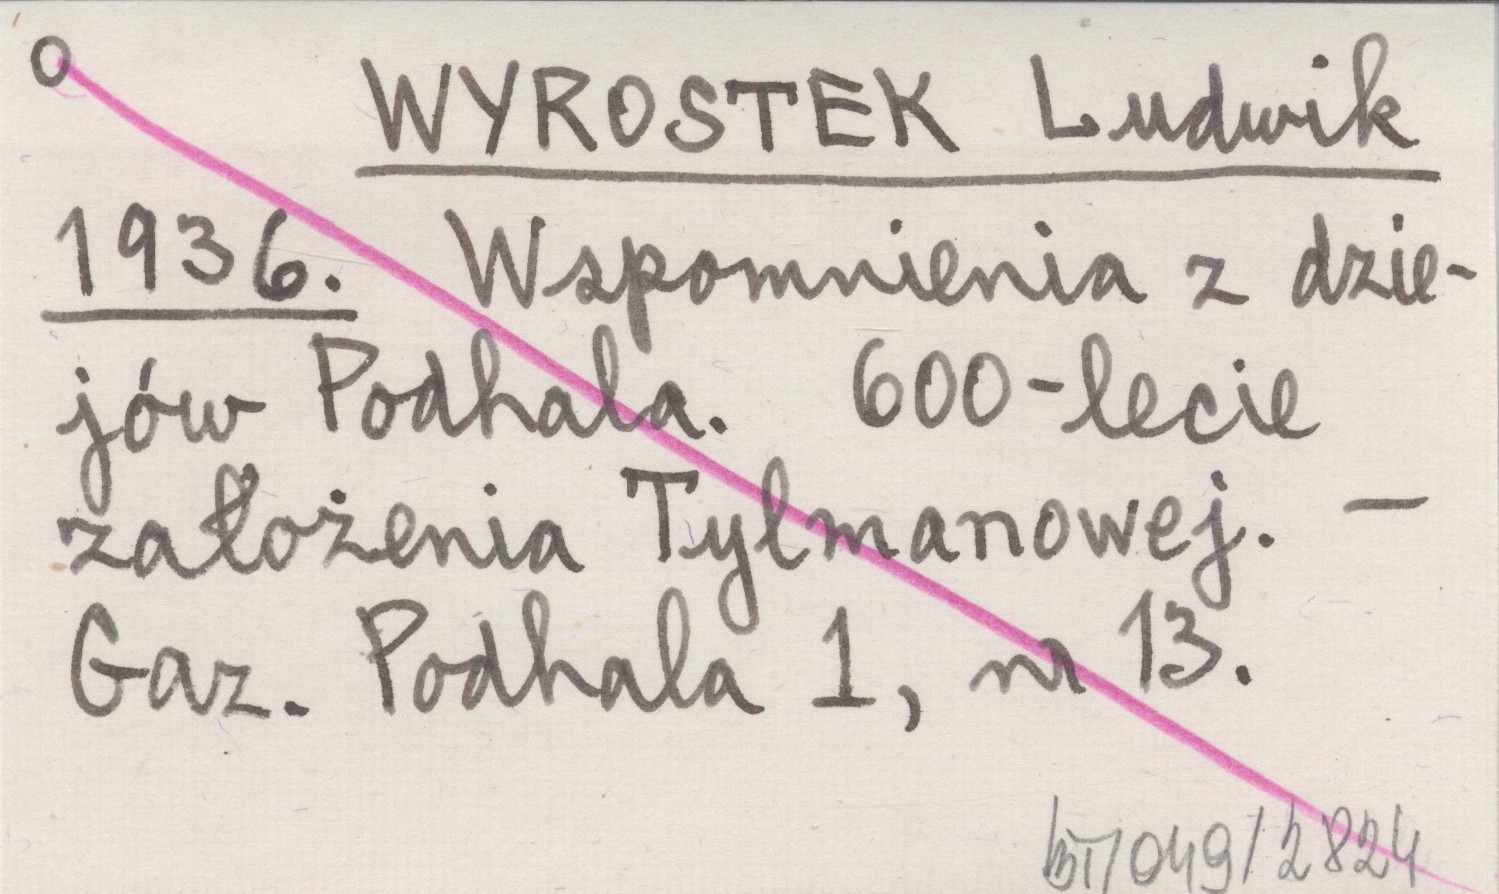 O
WYROSTEK Ludwik
1936. Wspomnienia z dzie-
jów Podhala. 600-lecie
założenia Tylmanowej. –
Gaz. Podhala 1, nr 13.
/049/2824